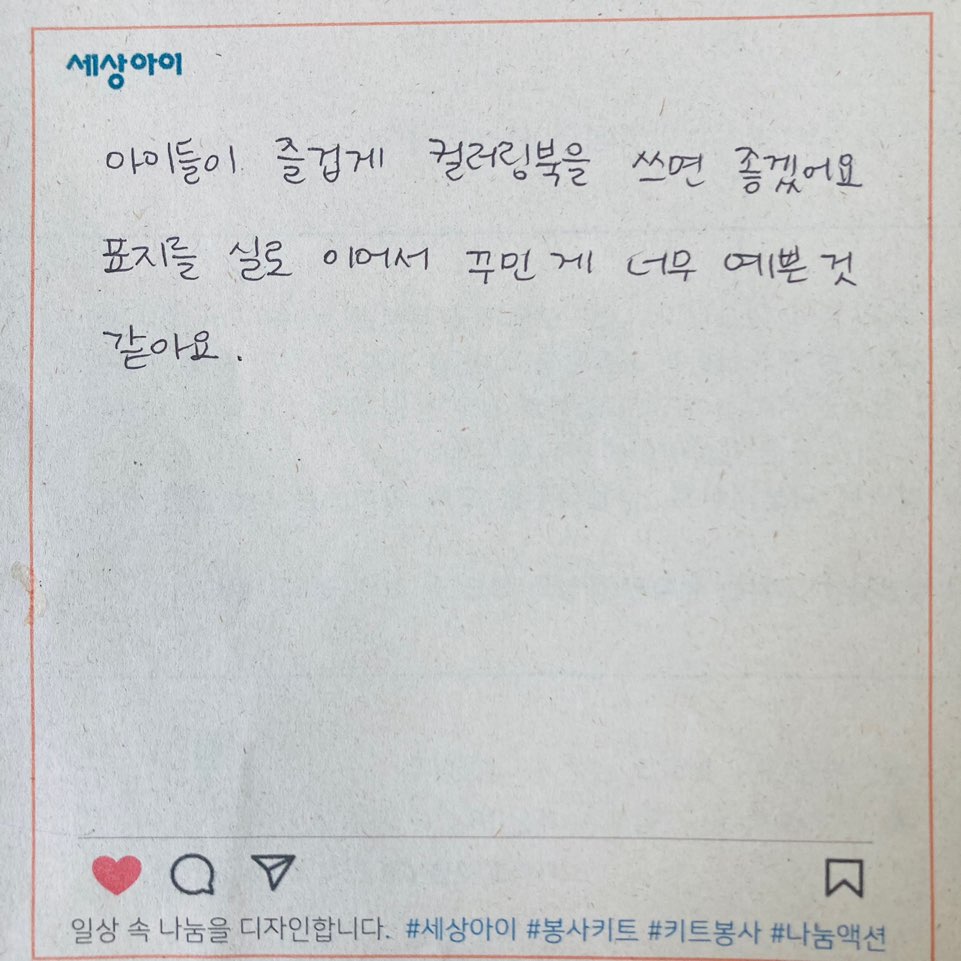 세상아이
아이들이 즐겁게 컬러링북을 쓰면 좋겠어요
표지를 실로 이어서 꾸민 게 너무 예쁜 것
같아요.
일상 속 나눔을 디자인합니다. #세상아이 #봉사키트 #키트봉사 #나눔액션